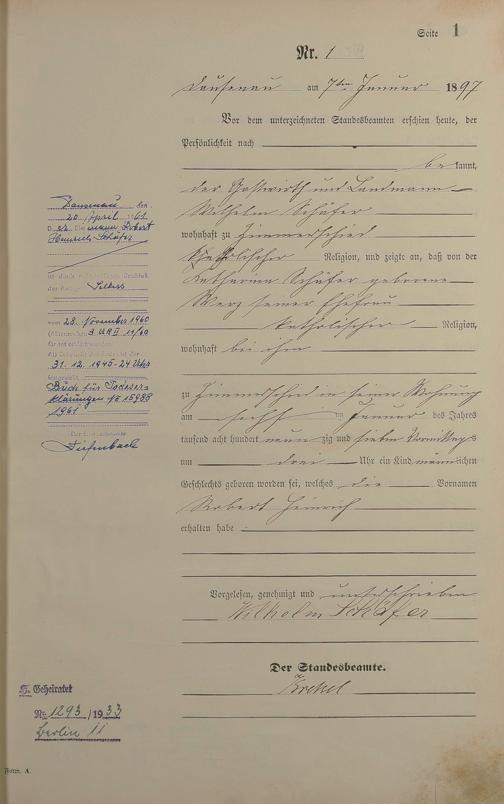 Seite 1
Nr. 1
Dausenau am 7ten Januar 1897
Vor dem unterzeichneten Standesbeamten erschien heute, der
Persönlichkeit nach
bekannt,
der Gastwirth und Landmann
Wilhelm Schäfer
wohnhaft zu Zimmerschied
katholischer Religion, und zeigte an, daß von der
Katharina Schäfer geborene
Werz seiner Ehefrau
katholischer Religion,
wohnhaft bei ihm
zu Zimmerschied in seiner Wohnung
am sechsten Januar des Jahres
tausend acht hundert neunzig und sieben Vormittags
um drei Uhr ein Kind männlichen
Geschlechts geboren worden sei, welches die Vornamen
Robert Heinrich
erhalten habe
Vorgelesen, genehmigt und unterschrieben
Wilhelm Schäfer
Der Standesbeamte.
Krekel
Dausenau den
20 April 61
Robert
Heinrich Schäfer
ist durch
Selters
vom 23. November 1960
3 UR II 11/60
für tot
31.12.1945 - 24 Uhr
Buch für Todeser-
klärungen № 15988
1961
Der Standesbeamte
Diefenbach
Geheiratet
Nr. 1293/1933
Berlin 11
Form. A.